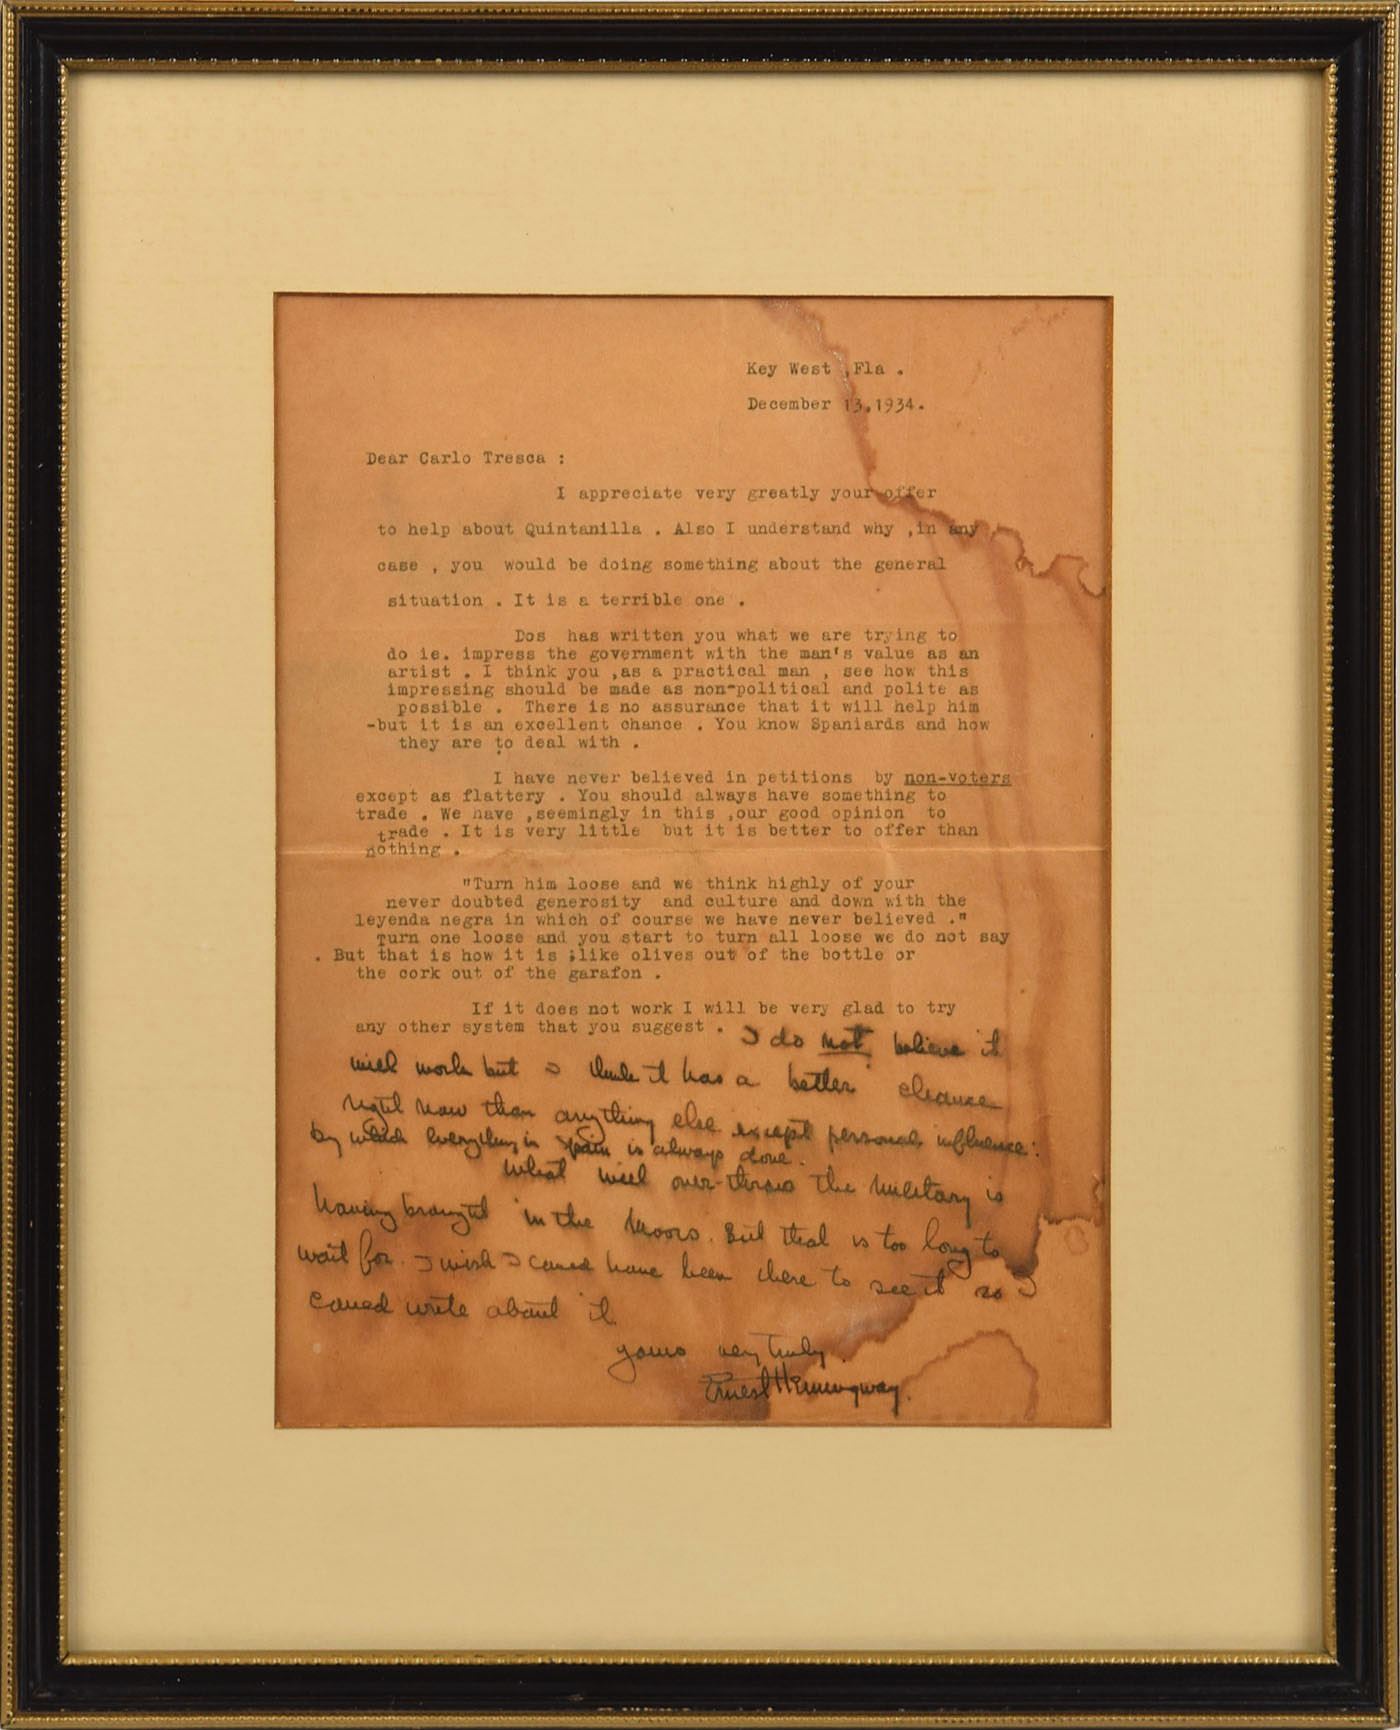 Key West ,Fla .
December 13,1934.
Dear Carlo Tresca :
I appreciate very greatly your offer
to help about Quintanilla . Also I understand why ,in any
case , you would be doing something about the general
situation . It is a terrible one .
Dos has written you what we are trying to
do ie. impress the government with the man's value as an
artist . I think you ,as a practical man , see how this
impressing should be made as non-political and polite as
possible . There is no assurance that it will help him
-but it is an excellent chance . You know Spaniards and how
they are to deal with .
I have never believed in petitions by non-voters
except as flattery . You should always have something to
trade . We have ,seemingly in this ,our good opinion to
trade . It is very little but it is better to offer than
nothing .
"Turn him loose and we think highly of your
never doubted generosity and culture and down with the
leyenda negra in which of course we have never believed ."
Turn one loose and you start to turn all loose we do not say
. But that is how it is ;like olives out of the bottle or
the cork out of the garafon .
If it does not work I will be very glad to try
any other system that you suggest . I do not believe it
will work but I think it has a better chance
right now than anything else except personal influence:
by which everything in Spain is always done.
What will over-throw the military is
having brought in the Moors. But that is too long to
wait for. I wish I could have been there to see it so I
could write about it.
Yours very truly.
Ernest Hemingway.